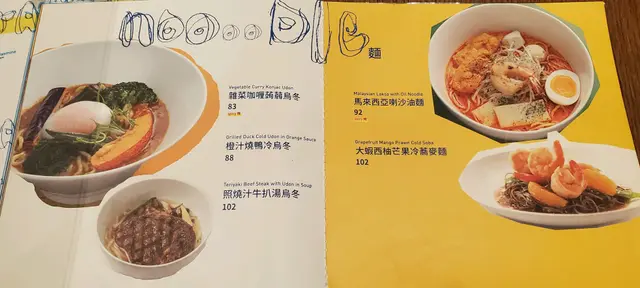 noo...DLE
麵
Vegetable Curry Konjac Udon
雜菜咖喱蒟蒻烏冬
83
Grilled Duck Cold Udon in Orange Sauce
橙汁燒鴨冷烏冬
88
Teriyaki Beef Steak with Udon in Soup
照燒汁牛扒湯烏冬
102
Malaysian Laksa with Oil Noodle
馬來西亞喇沙油麵
92
Grapefruit Mango Prawn Cold Soba
大蝦西柚芒果冷蕎麥麵
102